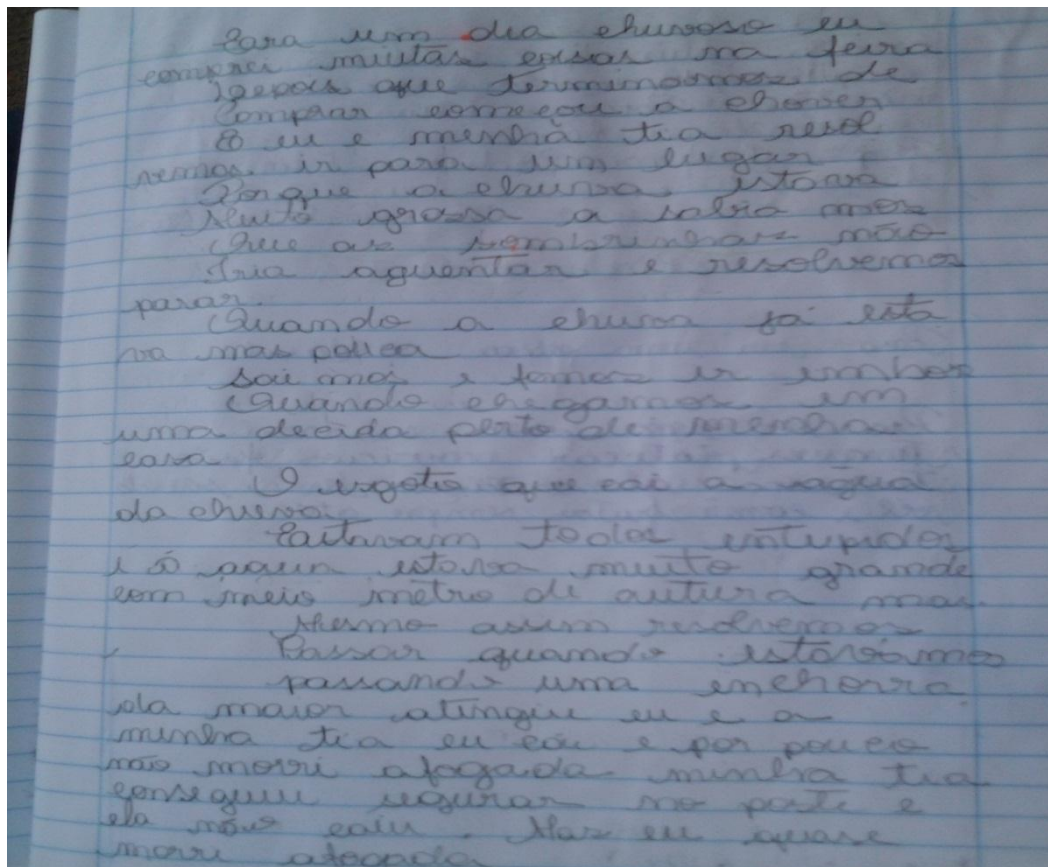 Para um dia chuvoso eu
comprei muitas coisas na feira
Depois que terminamos de
Comprar começou a chover
E eu e minha tia resol
vemos ir para um lugar
Porque a chuva estava
Muito grossa a sabia mos
Que as sombrinhas não
Iria aguentar e resolvemos
parar.
Quando a chuva já esta
va mas pouca
Sai mos e fomos ir embora
Quando chegamos em
uma decida perto de minha
casa
O esgoto que cai a água
da chuva
Estavam todos entupidos
e
estava muito grande
com meio metro de autura mas
Mesmo assim resolvemos
Passar quando estavamos
passando uma enchorra
da maior atingiu eu e a
minha tia eu cou e por pouco
não morri afogada minha tia
conseguiu segurar no poste e
ela não caiu. Mas eu quase
morri afogada